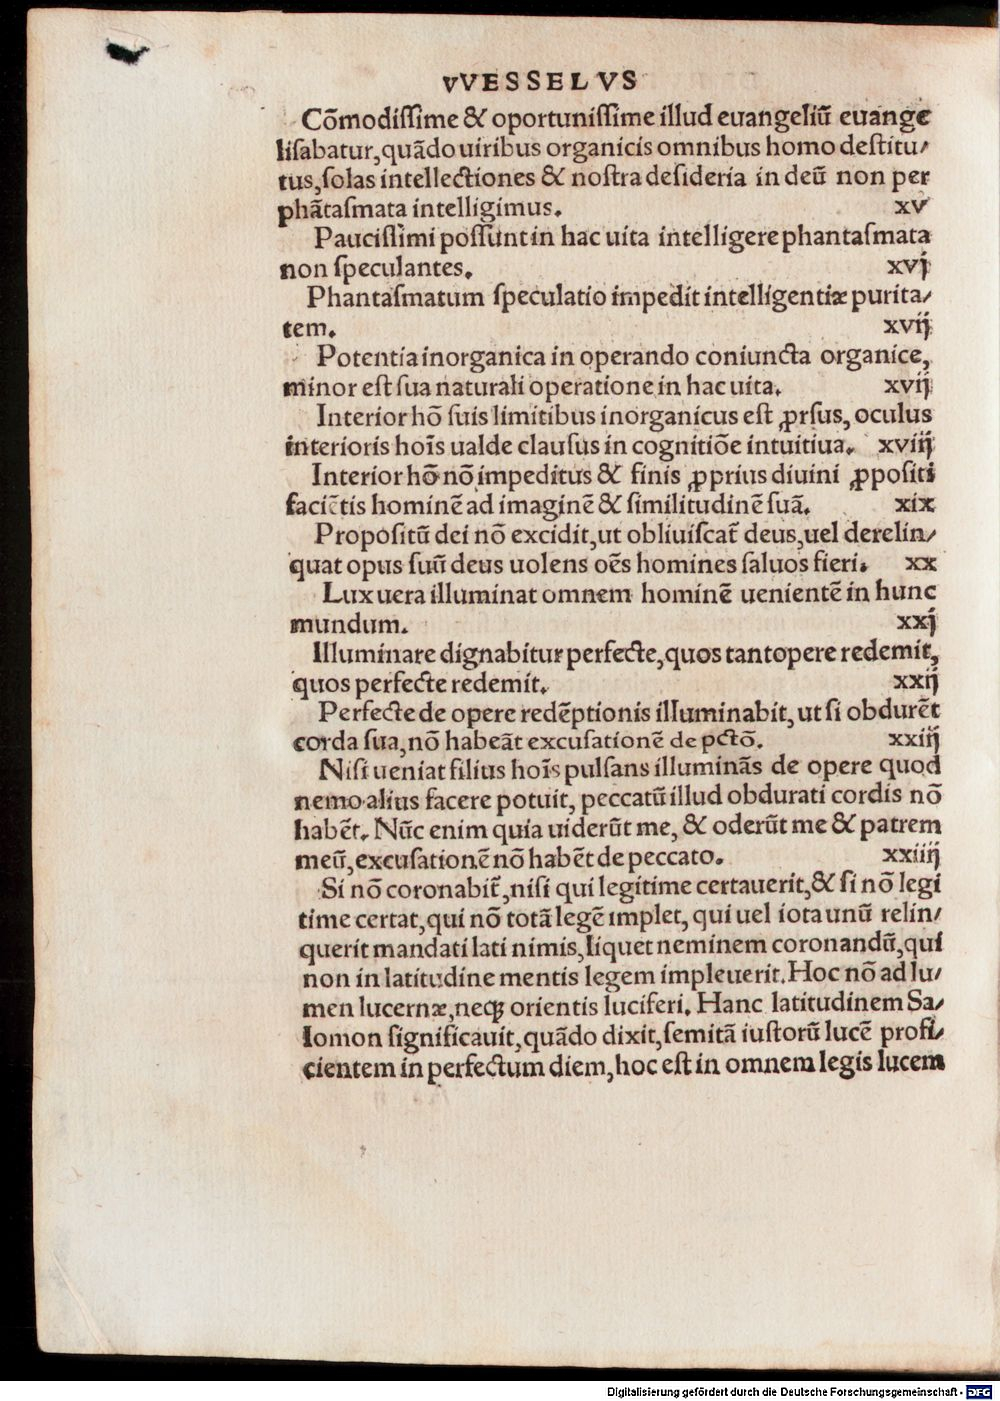 vVESSELVS
Cõmodiſſime & oportuniſſime illud euangeliũ euange
liſabatur, quãdo uiribus organicis omnibus homo deſtitu/
tus, ſolas intellectiones & noſtra deſideria in deũ non per
phãtaſmata intelligimus. xv
Pauciſſimi poſſunt in hac uita intelligere phantaſmata
non ſpeculantes. xvj
Phantaſmatum ſpeculatio impedit intelligentiæ purita/
tem. xvij
Potentia inorganica in operando coniuncta organice,
minor eſt ſua naturali operatione in hac uita. xvij
Interior hõ ſuis limitibus inorganicus eſt ꝓrſus, oculus
interioris hoĩs ualde clauſus in cognitiõe intuitiua. xviij
Interior hõ nõ impeditus & finis ꝓprius diuini ꝓpoſiti
faciẽtis hominẽ ad imaginẽ & ſimilitudinẽ ſuã. xix
Propoſitũ dei nõ excidit, ut obliuiſcat̃ deus, uel derelin/
quat opus ſuũ deus uolens oẽs homines ſaluos fieri. xx
Lux uera illuminat omnem hominẽ uenientẽ in hunc
mundum. xxj
Illuminare dignabitur perfecte, quos tantopere redemit,
quos perfecte redemit. xxij
Perfecte de opere redẽptionis illuminabit, ut ſi obdurẽt
corda ſua, nõ habeãt excuſationẽ de pctõ. xxiij
Niſi ueniat filius hoĩs pulſans illuminãs de opere quod
nemo alius facere potuit, peccatũ illud obdurati cordis nõ
habẽt. Nũc enim quia uiderũt me, & oderũt me & patrem
meũ, excuſationẽ nõ habẽt de peccato. xxiiij
Si nõ coronabit̃, niſi qui legitime certauerit, & ſi nõ legi
time certat, qui nõ totã legẽ implet, qui uel iota unũ relin/
querit mandati lati nimis, liquet neminem coronandũ, qui
non in latitudine mentis legem impleuerit. Hoc nõ ad lu/
men lucernæ, neqꝫ orientis luciferi. Hanc latitudinem Sa/
lomon ſignificauit, quãdo dixit, ſemitã iuſtorũ lucẽ profi/
cientem in perfectum diem, hoc eſt in omnem legis lucem
Digitalisierung gefördert durch die Deutsche Forschungsgemeinschaft - DFG